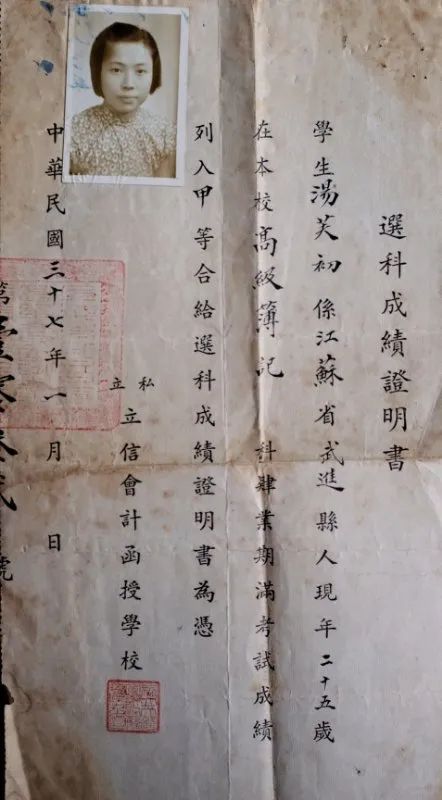 選科成績證明書
學生湯芙初係江蘇省武進縣人現年二十五歲
在本校高級簿記 科肄業期滿考試成績
列入甲等合給選科成績證明書為憑
私立
立信會計函授學校
中華民國三十七年一月 日
第 號